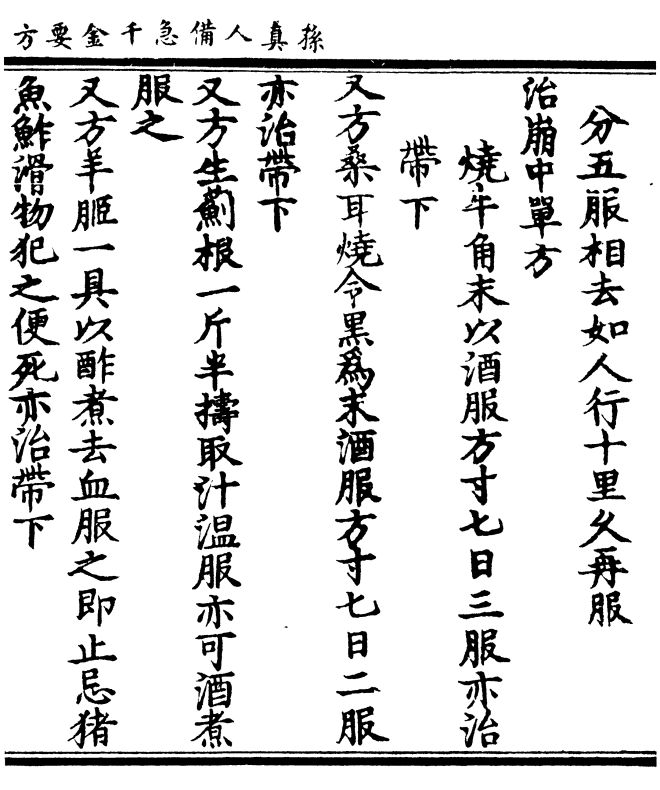 孫真人備急千金要方
分五服相去如人行十里久再服
治崩中單方
燒牛角末以酒服方寸七日三服亦治
帶下
又方桑耳燒令黑爲末酒服方寸七日二服
亦治帶下
又方生薊根一斤半擣取汁温服亦可酒煮
服之
又方羊胵一具以酢煮去血服之即止忌猪
魚鮓滑物犯之便死亦治帶下